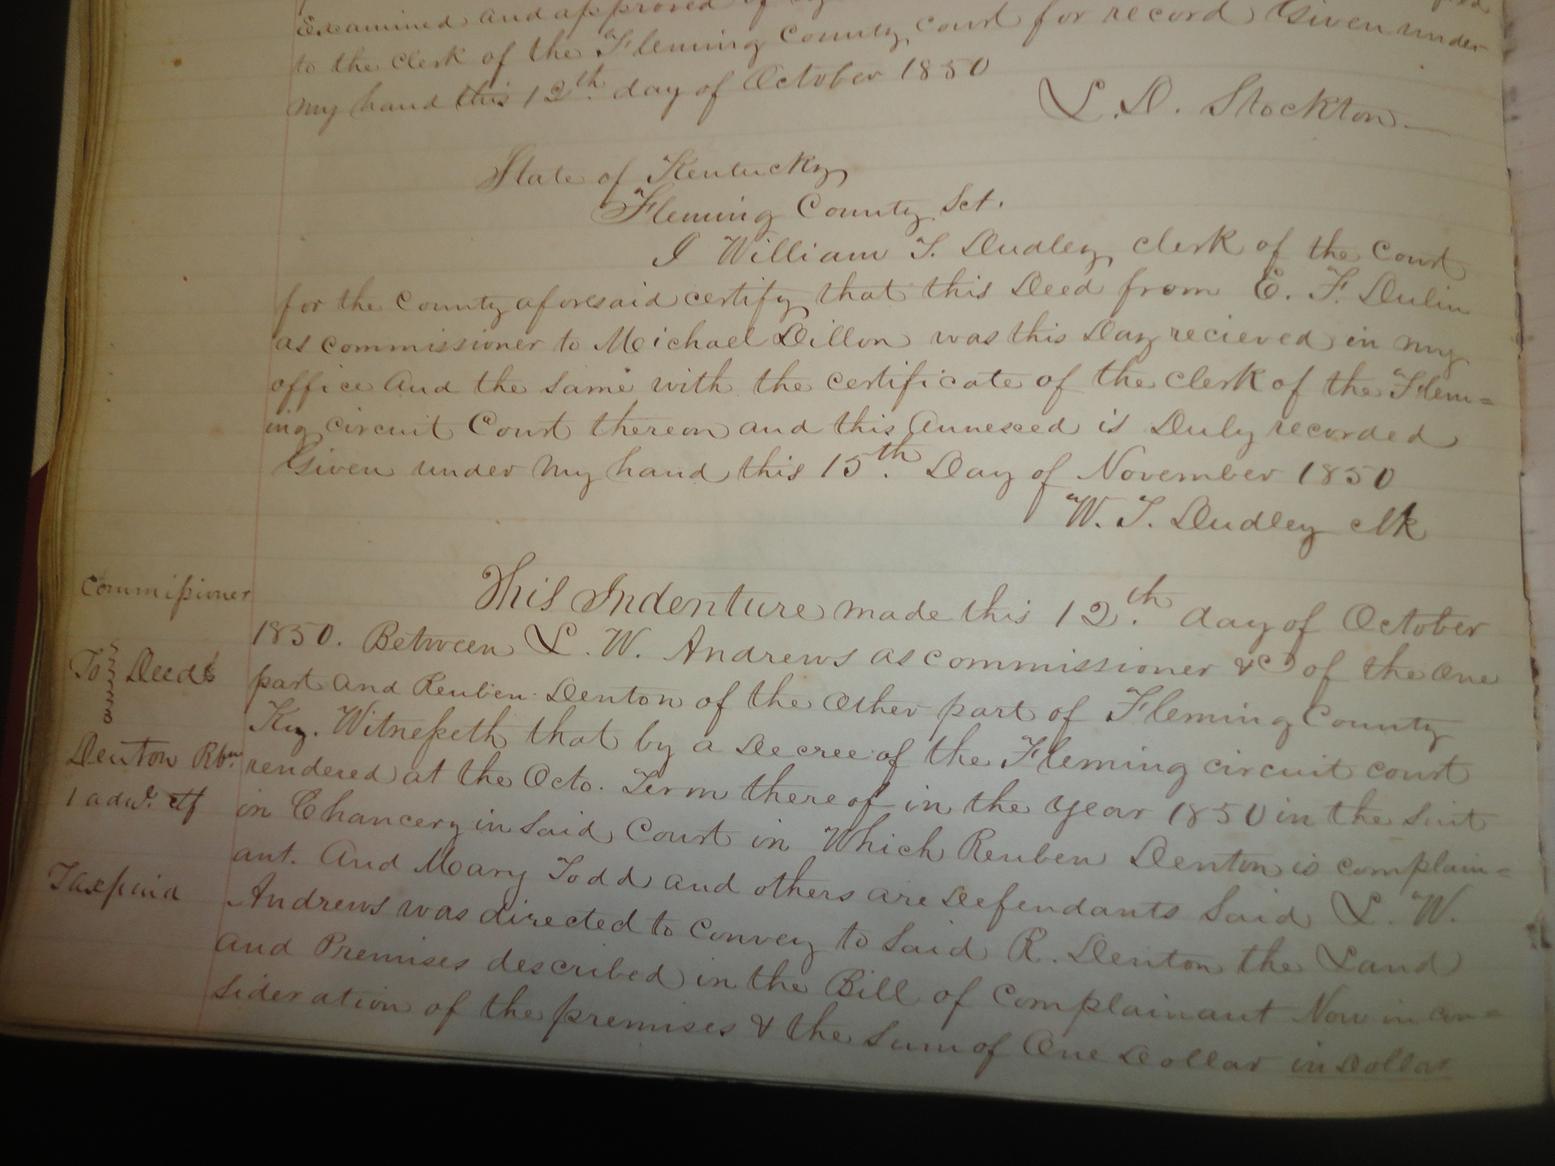 Examined and approved
to the clerk of the Fleming County court for record Given under
my hand this 12th. day of October 1850
L. D. Stockton
State of Kentucky
Fleming County Sct.
I William T. Dudley clerk of the Court
for the County aforesaid certify that this Deed from E. F. Dulin
as commissioner to Michael Dillon was this Day recieved in my
office And the same with the certificate of the clerk of the Flem=
ing circuit Court thereon and this Annexed is Duly recorded
Given under my hand this 15th. Day of November 1850
W. T. Dudley clk
Commissioner
To Deed
Denton Rbn
Tax paid
This Indenture made this 12.th day of October
1850. Between L. W. Andrews as commissioner &c of the one
part and Reuben Denton of the other part of Fleming County
Ky. Witnesseth that by a Decree of the Fleming circuit court
rendered at the Octo. Term thereof in the year 1850 in the Suit
in Chancery in Said Court in Which Reuben Denton is complain=
ant. And Mary Todd and others are Defendants Said L. W.
Andrews was directed to convey to Said R. Denton the Land
and Premises described in the Bill of Complainant Now in con=
sideration of the premises & the Sum of One Dollar in Dollar